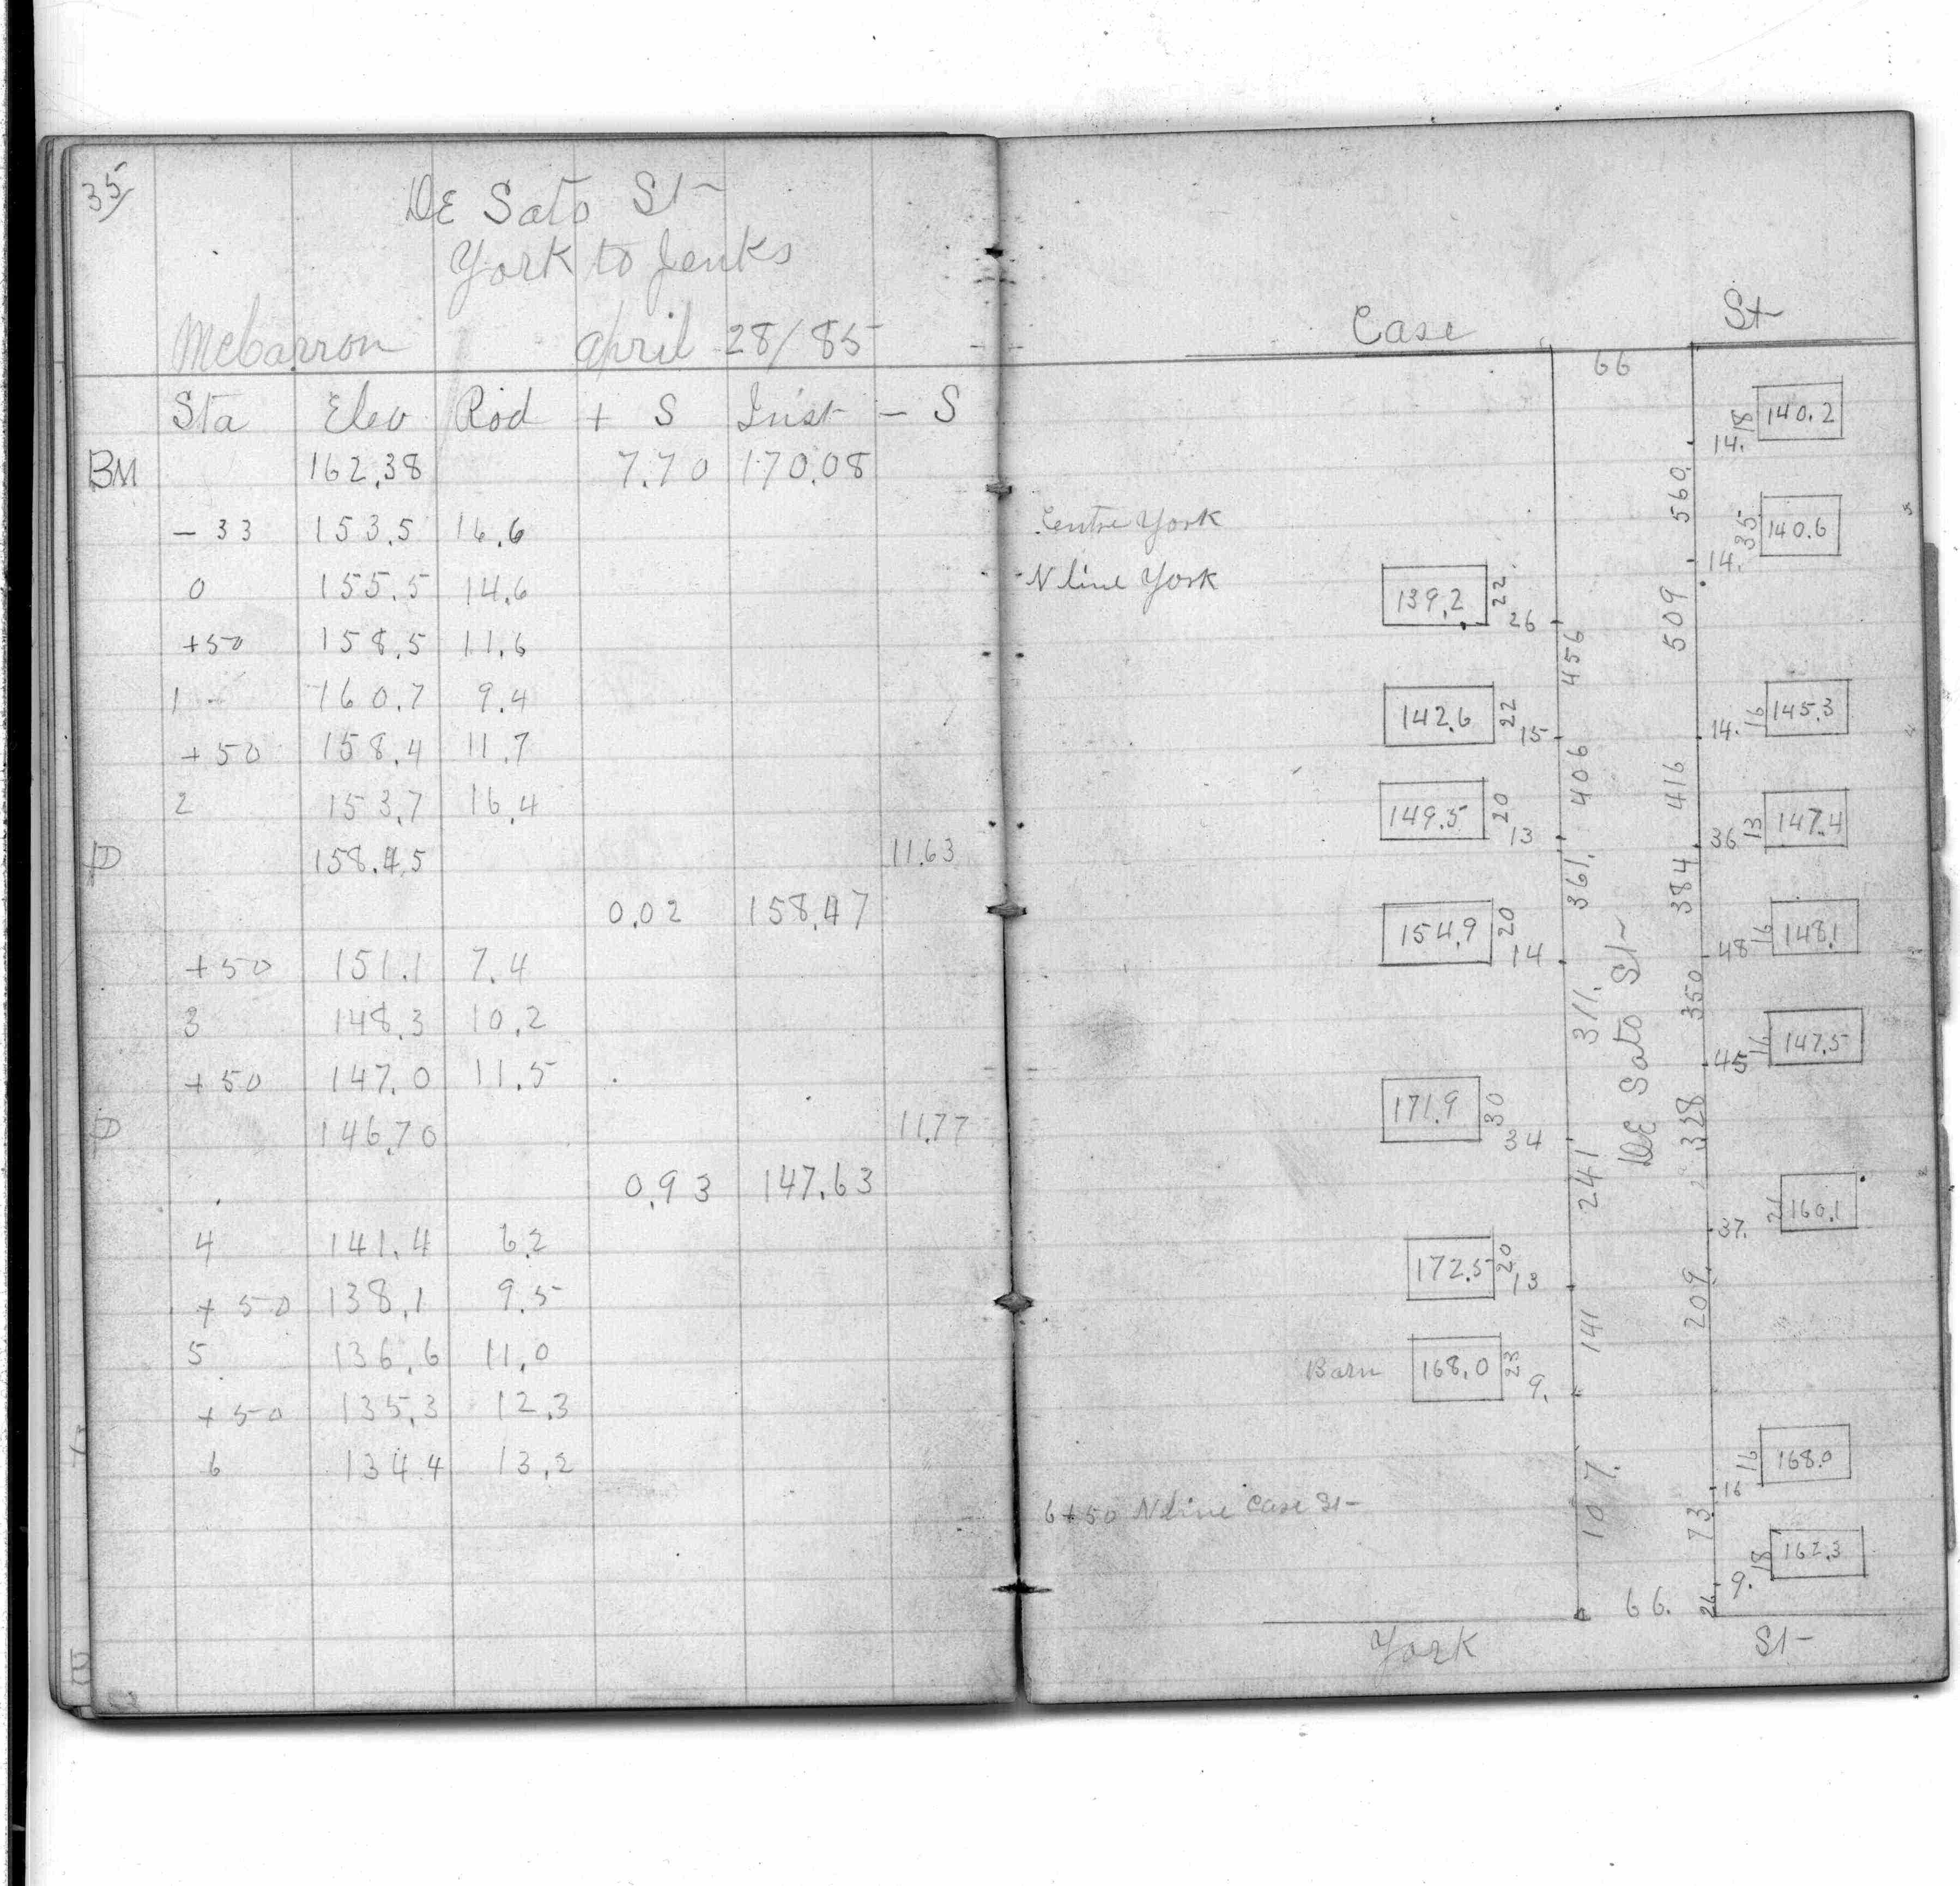 35
DE Sato St
York to Jenks
McCarron April 28/85
Sta Elev Rod + S Inst - S
BM 162.38 7.70 170.08
- 33 153.5 16.6
0 155.5 14.6
+50 158.5 11.6
1 160.7 9.4
+50 158.4 11.7
2 153.7 16.4
158.45 11.63
0.02 158.47
+50 151.1 7.4
3 148.3 10.2
+50 147.0 11.5
146.70 11.77
0.93 147.63
4 141.4 6.2
+50 138.1 9.5
5 136.6 11.0
+50 135.3 12.3
6 134.4 13.2
Case St
66
140.2 18 14.
560.
Centre York
140.6 35 14.
N line York
139.2 22 26
509
456
142.6 22 15
145.3 16 14.
406 416
149.5 20 13
36 13 147.4
361. 384
154.9 20 14
48 16 148.1
311. 350
DE Sato St
45 16 147.5
171.9 30 34
328
241
37. 21 160.1
172.5 20 13
209
141
Barn 168.0 23 9.
16 16 168.0
107. 73
6+50 N line Case St
9. 18 162.3
66. 26.
York St